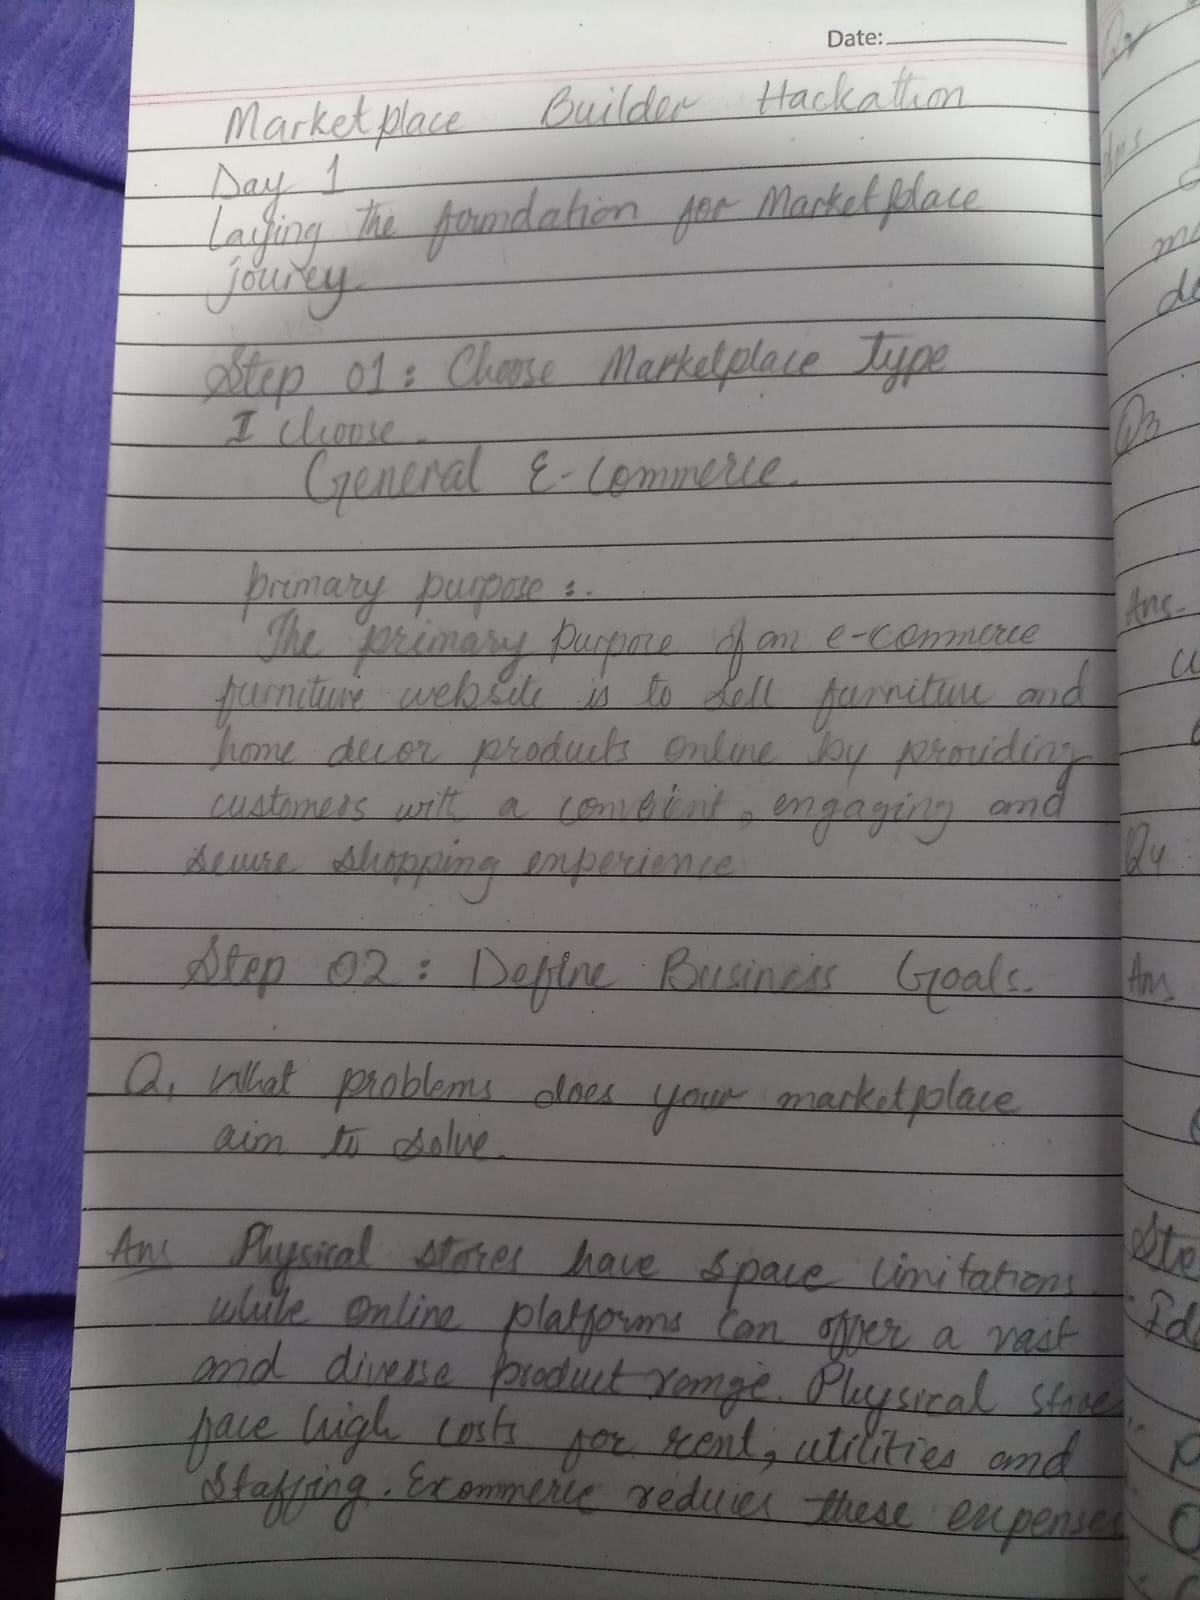 Date:
Marketplace Builder Hackathon
Day 1
Laying the foundation for Marketplace
jourey.
Step 01: Choose Marketplace type
I choose.
General E-commerce.
primary purpose :.
The primary purpose of an e-commerce
furniture website is to sell furniture and
home decor products online by providing
customers with a convient, engaging and
secure shopping experience
Step 02: Define Business Goals.
Q1 What problems does your marketplace
aim to solve.
Ans Physical stores have space limitations
while online platforms can offer a vast
and diverse product range. Physical store
face high costs for rent, utilities and
Staffing. Ecommerce reducies these expenses
Q3
Ans-
Q4
Ans